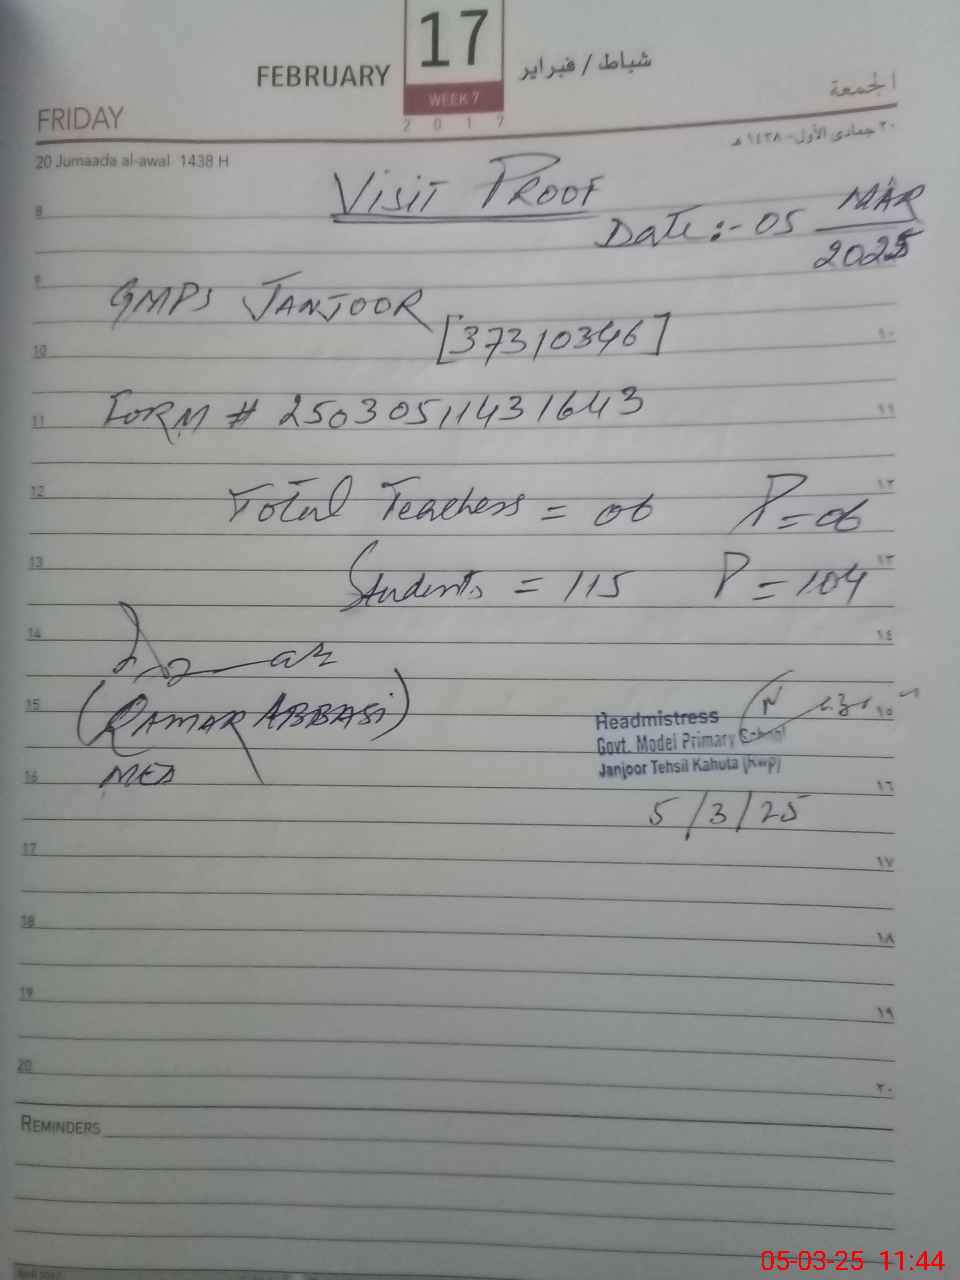 FEBRUARY 17 شباط / فبراير
WEEK 7
FRIDAY الجمعة
2 0 1 7
20 Jumaada al-awal 1438 H ٢٠ جمادى الأول - ١٤٣٨ هـ
VISIT PROOF
8
Date :- 05 MAR
2025
9
GMPS JANJOOR
[37310346]
10 ١٠
FORM # 25030511431643
11 ١١
12 ١٢
Total Teachers = 06 P = 06
13 ١٣
Students = 115 P = 104
14 ١٤
(QAMAR ABBASI)
15 ١٥
Headmistress
Govt. Model Primary School
Janjoor Tehsil Kahuta (Rwp)
MEA
16 ١٦
5/3/25
17 ١٧
18 ١٨
19 ١٩
20 ٢٠
REMINDERS
05-03-25 11:44